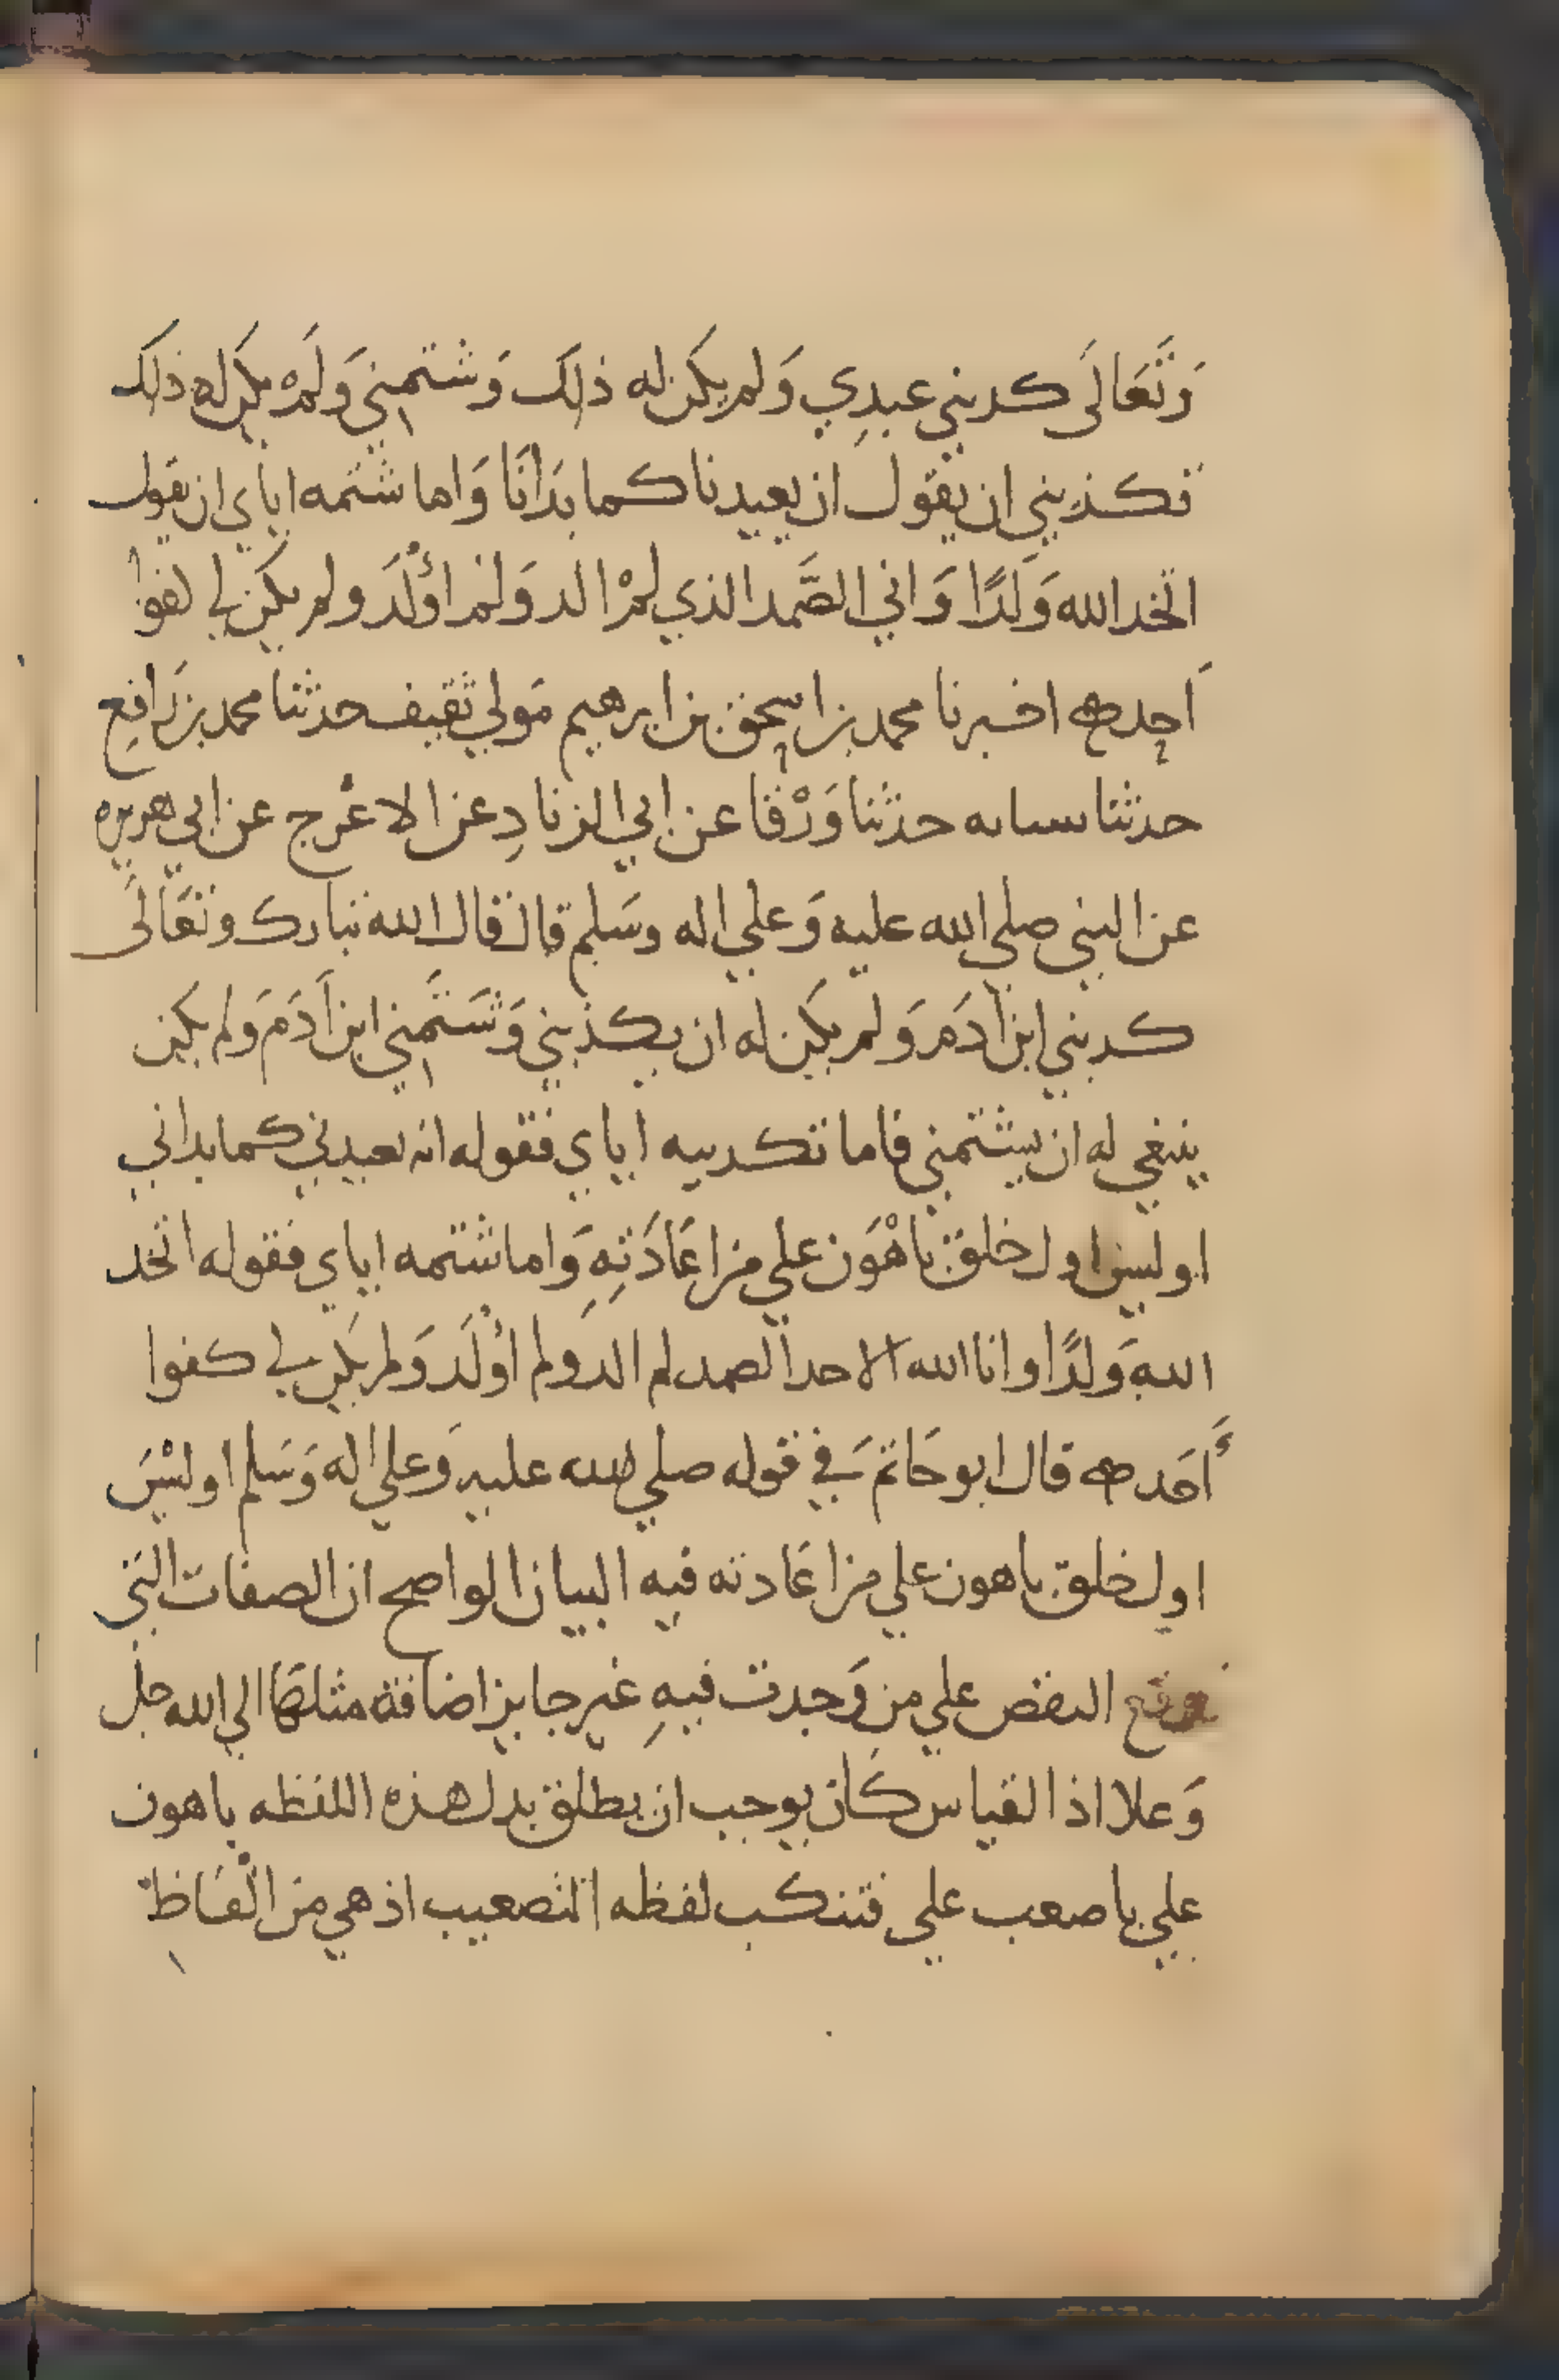 وَتَعَالَى كدبني عبدِي وَلم يكن له ذلك وَشتمني وَلَمْ يكن له ذلك
فكذبني ان يقول ان يعيدنا كما بَدَانَا وَاما شتمه اياي ان يقول
اتخد الله وَلَدًا وَاني الصَّمد الذي لمْ الد وَلم اوْلَدَ ولم يكن لي كفوا
اَحد اخبرنا محمد بن اسحق بن ابرهيم مَولي ثقيف حدثنا محمد بن رَافع
حدثنا سبابه حدثنا وَرْقا عن ابي الزنادِ عن الاعْرج عن ابي هريره
عن النبي صلي الله عليه وَعلي اله وسَلم قال قال الله تبارك وتعَالَى
كدبني ابن اَدَم وَلم يكن له ان يكذبني وَشَتَمني ابن اَدَمَ وَلم يكن
ينبغي له ان يشتمني فاما تكديبه اياي فقوله انه يعيدني كما بداني
اوليس اول خلق باهْوَن علي من اعَادَتِهِ وَاما شتمه اياي فقوله اتخد
اللهِ وَلدًا وانا الله الاحد الصمد لم الد ولم اوْلَد وَلم يكن لي كفوا
أَحَد قال ابو حَاتم في قوله صلي الله عليه وَعلي اله وَسَلم اوليْسَ
اول خلق باهون علي من اعَادته فيه البيان الواضح ان الصفات التي
توقع النقص علي من وَجدت فيهِ غير جايز اضافة مثلهَا الي الله جل
وَعلا اذ القياس كَان يوجب ان يطلق بدل هذه اللفظه باهون
علي باصعب علي فتنكب لفظه التصعيب اذ هي من الْفَاظِ